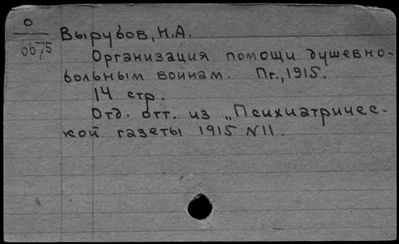 О
0675
Вырубов, Н.А.
Организация помощи душевно-
больным воинам. Пг., 1915.
14 стр.
Отд. отт. из „Психиатричес-
кой газеты 1915 N11.